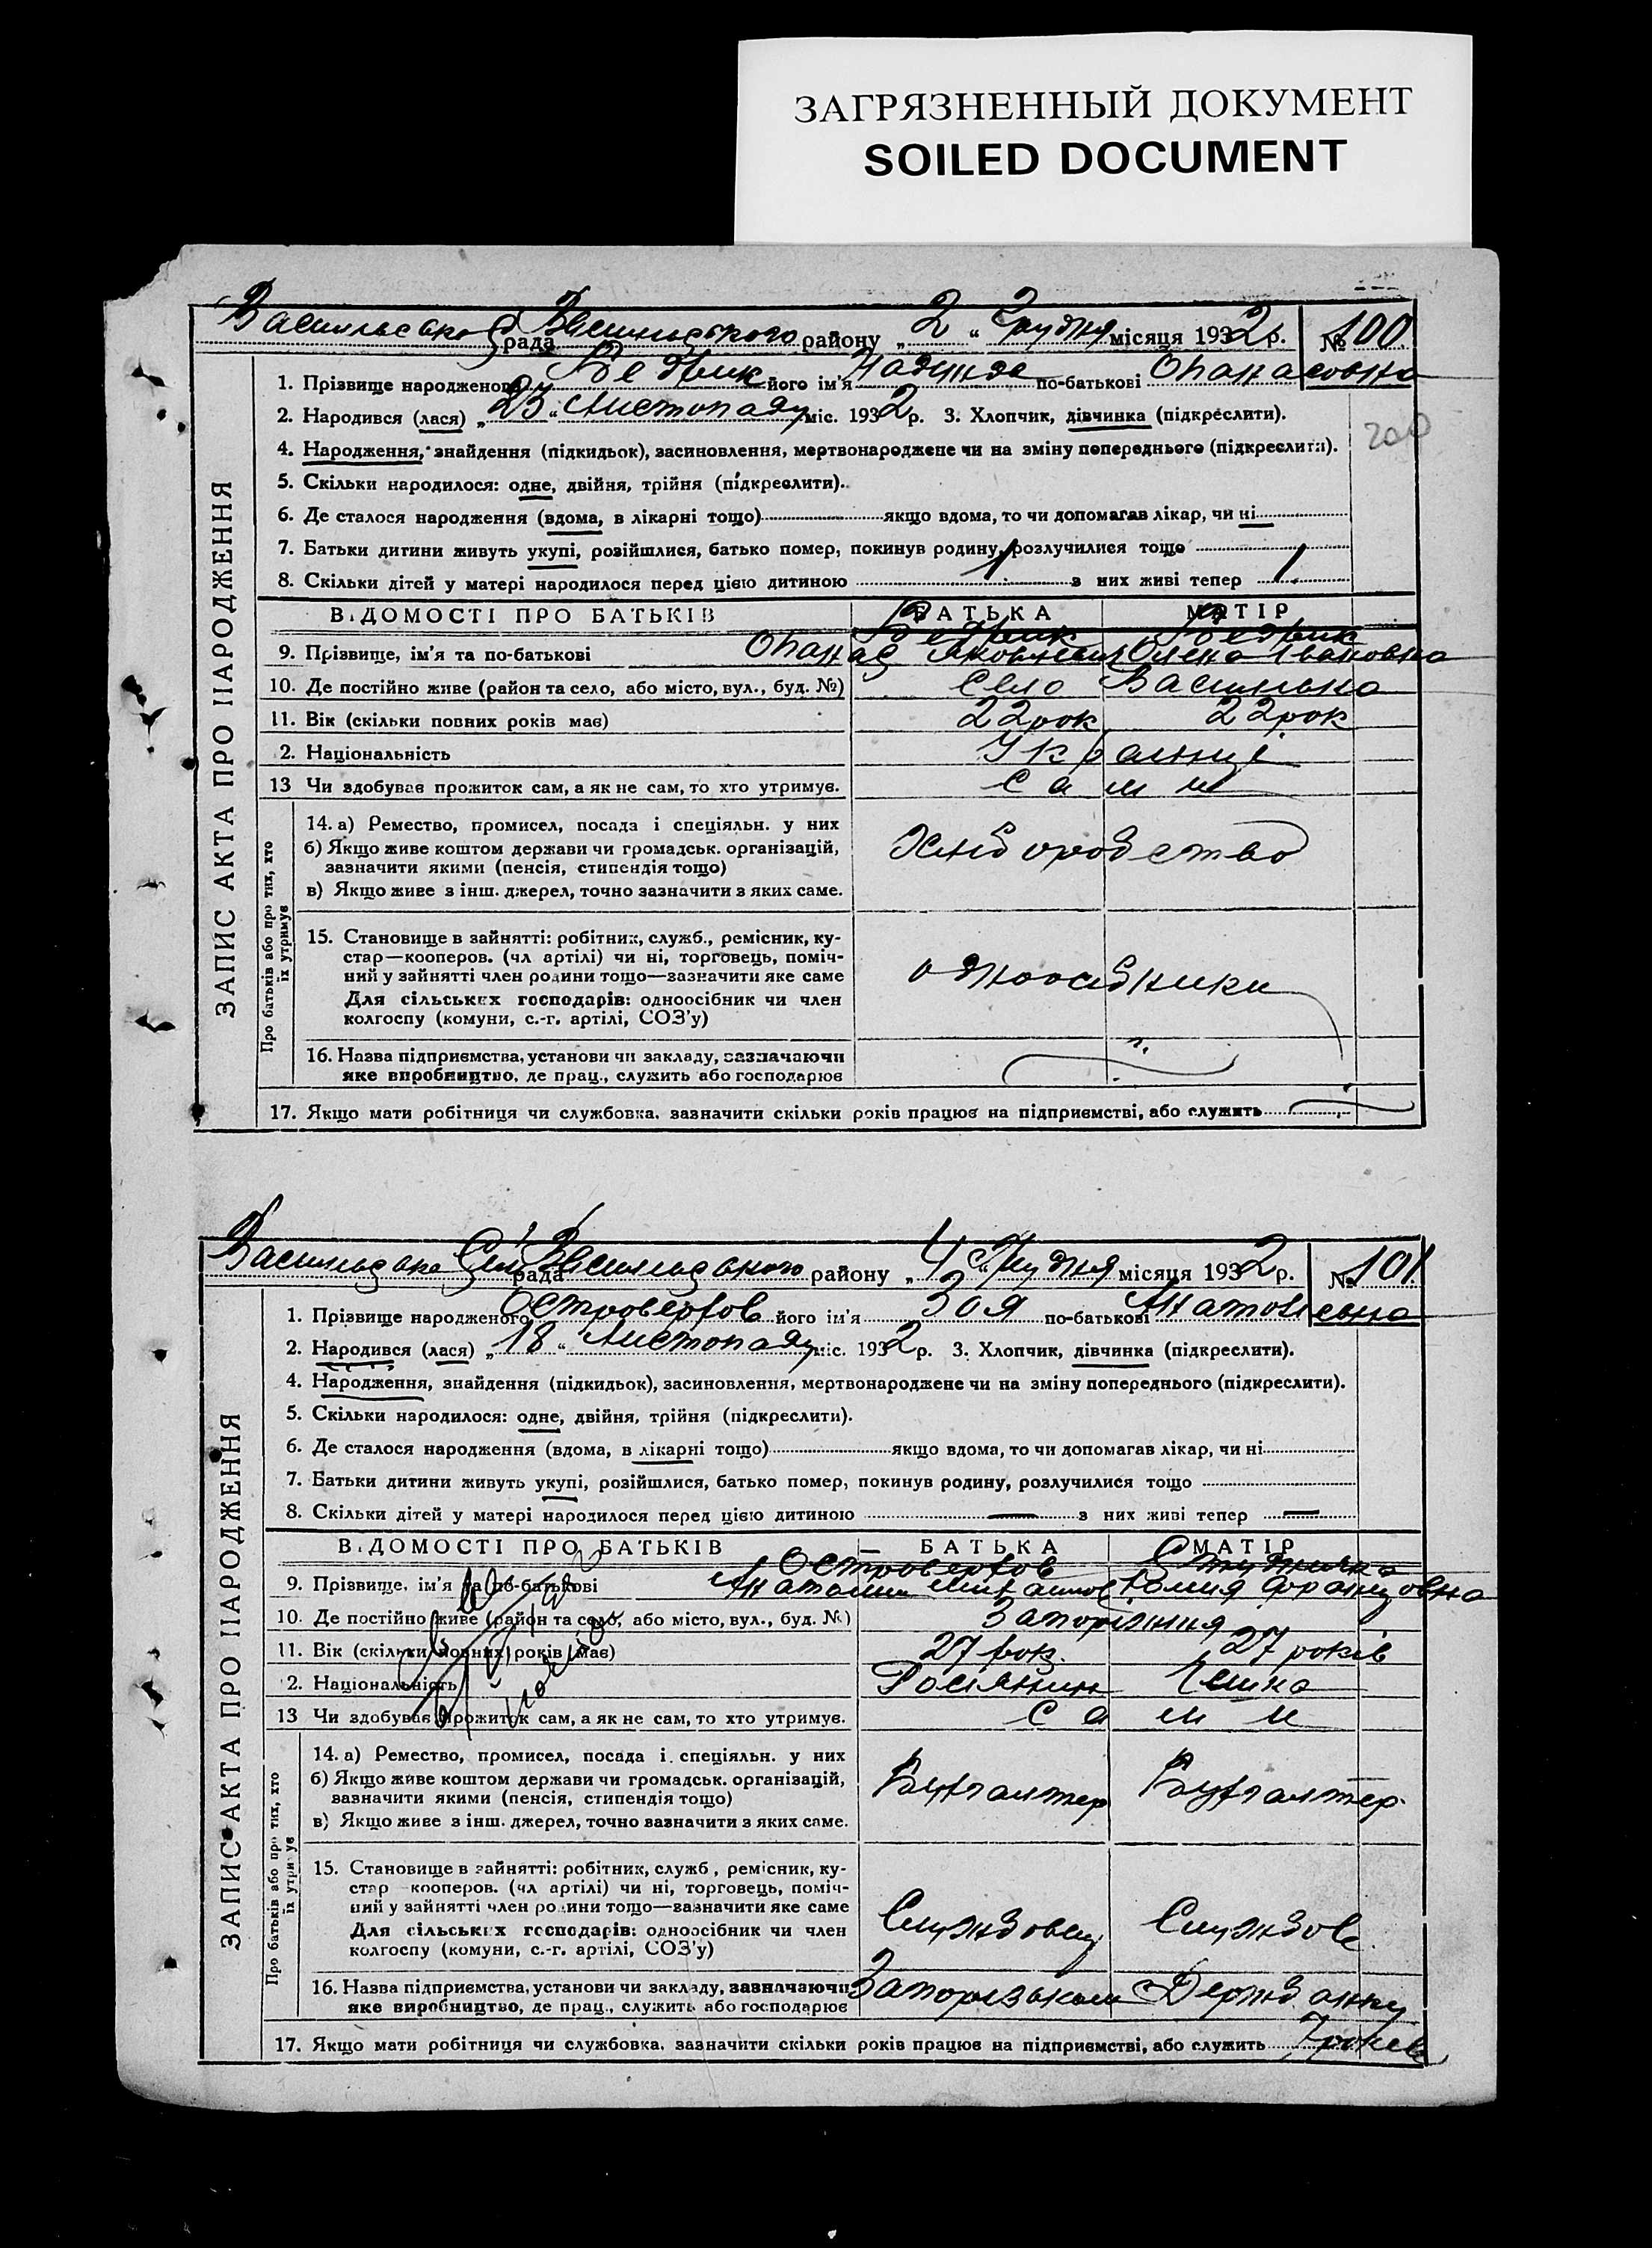 ЗАГРЯЗНЕННЫЙ ДОКУМЕНТ
SOILED DOCUMENT
Васильська С рада Васильського району „ 2 “ Грудня місяця 1932 р. № 100
ЗАПИС АКТА ПРО НАРОДЖЕННЯ
1. Прізвище народженого Бедрик його ім'я Надежда по-батькові Опанасовна
2. Народився (лася) „ 25 “ Листопаду міс. 1932 р. 3. Хлопчик, дівчинка (підкреслити).
200
4. Народження, знайдення (підкидьок), засиновлення, мертвонароджене чи на зміну попереднього (підкреслити).
5. Скільки народилося: одне, двійня, трійня (підкреслити).
6. Де сталося народження (вдома, в лікарні тощо) якщо вдома, то чи допомагав лікар, чи ні
7. Батьки дитини живуть укупі, розійшлися, батько помер, покинув родину, розлучилися тощо
8. Скільки дітей у матері народилося перед цією дитиною 1 з них живі тепер 1
ВІДОМОСТІ ПРО БАТЬКІВ БАТЬКА МАТІР
Бедрик Бедрик
9. Прізвище, ім'я та по-батькові Опанас Яковлевич Олена Івановна
10. Де постійно живе (район та село, або місто, вул., буд. №) Село Василько
11. Вік (скільки повних років має) 22 рок 22 рок
2. Національність Українці
13 Чи здобував прожиток сам, а як не сам, то хто утримує. Сами
Про батьків або про тих, хто
їх утримує
14. а) Ремество, промисел, посада і спеціяльн. у них
б) Якщо живе коштом держави чи громадськ. організацій,
зазначити якими (пенсія, стипендія тощо)
в) Якщо живе з інш. джерел, точно зазначити з яких саме.
Хліборобство
15. Становище в зайнятті: робітник, служб., ремісник, ку-
стар—кооперов. (чл артілі) чи ні, торговець, поміч-
ний у зайнятті член родини тощо—зазначити яке саме
Для сільських господарів: одноосібник чи член
колгоспу (комуни, с.-г. артілі, СОЗ'у)
одноосібники
16. Назва підприємства, установи чи закладу, зазначаючи
яке виробництво, де прац., служить або господарює
17. Якщо мати робітниця чи службовка, зазначити скільки років працює на підприємстві, або служить
Васильська Сіл рада Васильського району „ 4 “ Грудня місяця 1932 р. № 101
ЗАПИС АКТА ПРО НАРОДЖЕННЯ
1. Прізвище народженого Островерхов його ім'я Зоя по-батькові Анатольевна
2. Народився (лася) „ 18 “ Листопаду міс. 1932 р. 3. Хлопчик, дівчинка (підкреслити).
4. Народження, знайдення (підкидьок), засиновлення, мертвонароджене чи на зміну попереднього (підкреслити).
5. Скільки народилося: одне, двійня, трійня (підкреслити).
6. Де сталося народження (вдома, в лікарні тощо) якщо вдома, то чи допомагав лікар, чи ні
7. Батьки дитини живуть укупі, розійшлися, батько помер, покинув родину, розлучилися тощо
8. Скільки дітей у матері народилося перед цією дитиною — з них живі тепер —
ВІДОМОСТІ ПРО БАТЬКІВ БАТЬКА МАТІР
Островерхов
9. Прізвище, ім'я та по-батькові Анатолий Михайлов Юлия Францовна
10. Де постійно живе (район та село, або місто, вул., буд. №) Запоріжжя
11. Вік (скільки повних років має) 27 рок. 27 років
2. Національність Росіянин Чешка
13 Чи здобував прожиток сам, а як не сам, то хто утримує. Сами
Про батьків або про тих, хто
їх утримує
14. а) Ремество, промисел, посада і спеціяльн. у них
б) Якщо живе коштом держави чи громадськ. організацій,
зазначити якими (пенсія, стипендія тощо)
в) Якщо живе з інш. джерел, точно зазначити з яких саме.
Бухгалтер Бухгалтер
15. Становище в зайнятті: робітник, служб., ремісник, ку-
стар—кооперов. (чл артілі) чи ні, торговець, поміч-
ний у зайнятті член родини тощо—зазначити яке саме
Для сільських господарів: одноосібник чи член
колгоспу (комуни, с.-г. артілі, СОЗ'у)
Службовец Службов.
16. Назва підприємства, установи чи закладу, зазначаючи
яке виробництво, де прац., служить або господарює
Запорізьком Держбанку
17. Якщо мати робітниця чи службовка, зазначити скільки років працює на підприємстві, або служить 7 років